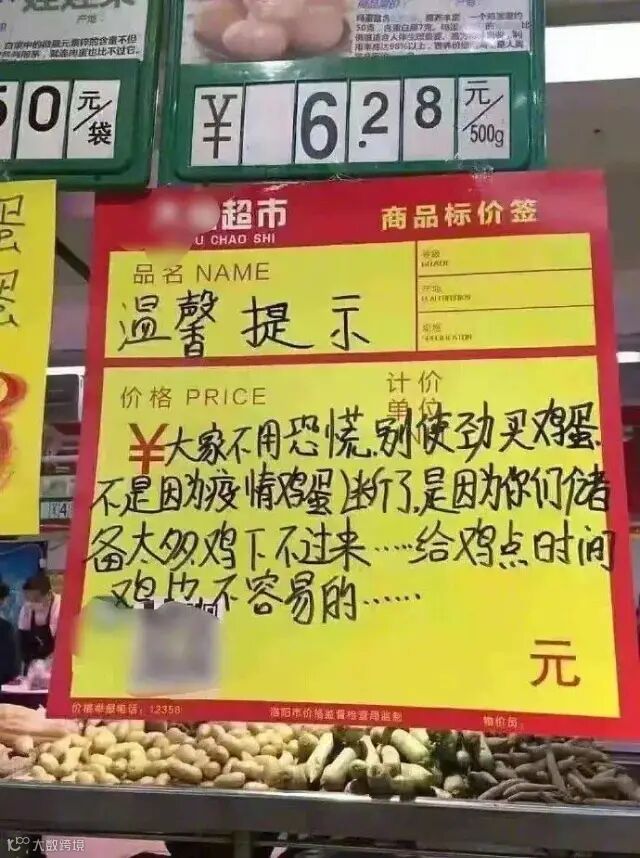 娃娃菜
产地
50 元/袋
¥ 6.28 元/500g
超市
U CHAO SHI
商品标价签
品名 NAME
温馨提示
价格 PRICE
计价
单位
¥大家不用恐慌,别使劲买鸡蛋,
不是因为疫情鸡蛋断了,是因为你们储
备太多,鸡下不过来……给鸡点时间
鸡也不容易的……
元
价格举报电话:12358
洛阳市价格监督检查局监制
物价员:
大数跨境